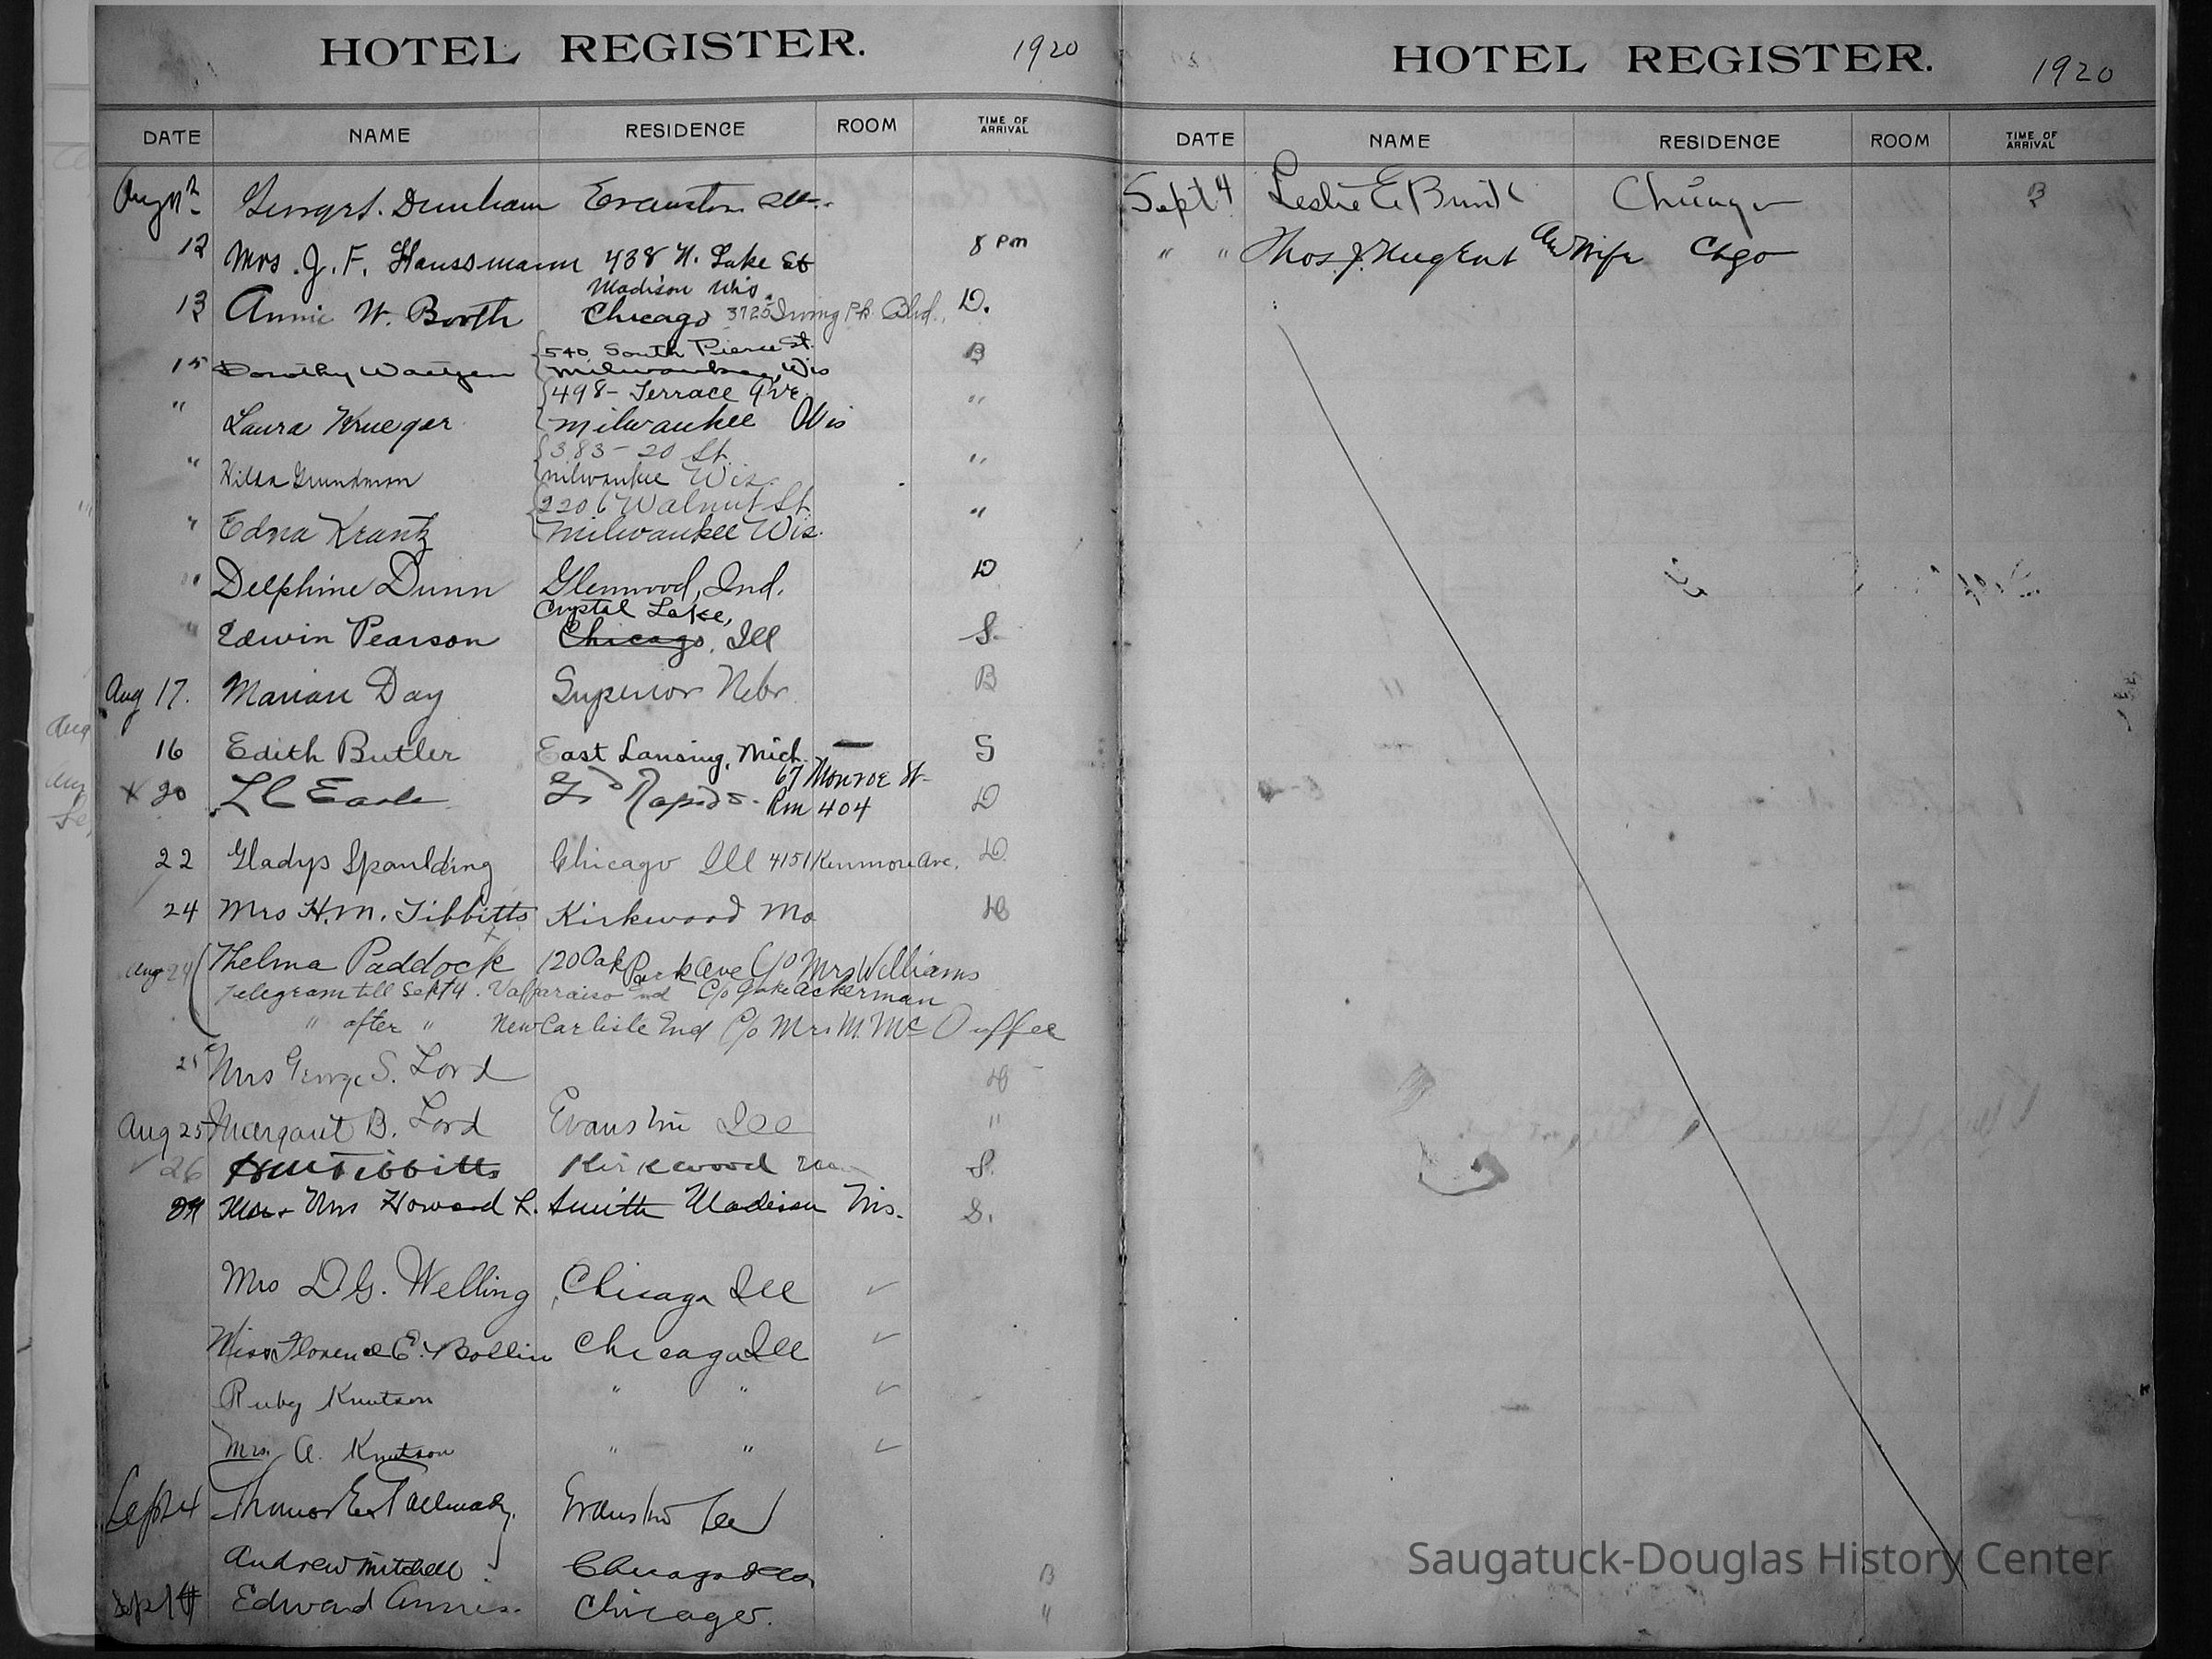 HOTEL REGISTER. 1920
DATE NAME RESIDENCE ROOM TIME OF ARRIVAL
Aug 12 Dunham Evanston Ill.
12 Mrs. J. F. Haussmann 438 N. Lake St 8 PM
Madison Wis.
13 Annie W. Booth Chicago 3725 Irving Pk. Blvd. D.
540 South Pierce St.
15 Dorothy Milwaukee, Wis B
498 - Terrace Ave.
" Laura Krueger Milwaukee Wis "
383 - 20 St.
" Hilda Grundman Milwaukee Wis. "
2206 Walnut St.
" Edna Krantz Milwaukee Wis. "
" Delphine Dunn Glenwood, Ind. D
Crystal Lake,
" Edwin Pearson Chicago, Ill S.
Aug 17. Marian Day Superior Nebr B
16 Edith Butler East Lansing, Mich. — S
67 Monroe St-
x 20 L C Earle Gd Rapids - Rm 404 D
22 Gladys Spaulding Chicago Ill 4151 Kenmore Ave. D.
24 Mrs H. M. Tibbitts Kirkwood Mo
Aug 24 Thelma Paddock 120 Oak Park Ave C/o Mrs Williams
Telegram till Sept 4. Valparaiso Ind C/o Jake Ackerman
" after " New Carlisle Ind C/o Mrs M. Mc Duffee
25 Mrs George S. Lord
Aug 25 Margaret B. Lord Evanston Ill "
26 Tibbitts Kirkwood S.
29 Mr + Mrs Howard L. Smith Madison Wis. S.
Mrs D. G. Welling, Chicago Ill ✓
Miss Florence E. Bollin Chicago Ill ✓
Ruby Knutson " " ✓
Mrs. A. Knutson " " ✓
Sept 4 Thomas E. Tallmadge Evanston Ill
Andrew Mitchell Chicago Ills B
Sept 4 Edward Chicago. "
HOTEL REGISTER. 1920
DATE NAME RESIDENCE ROOM TIME OF ARRIVAL
Sept 4 Leslie E Chicago B
" " Thos. J. Nugent and Wife Chgo
Saugatuck-Douglas History Center